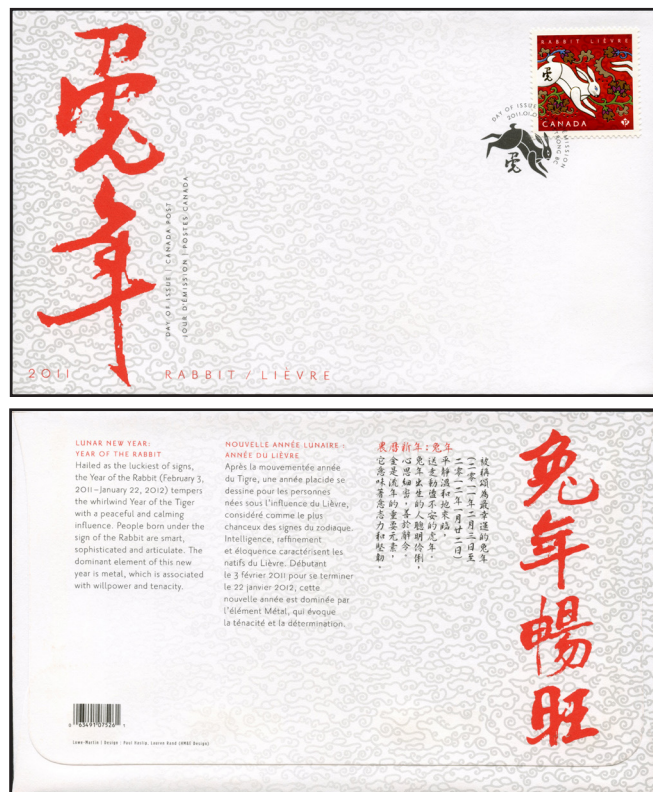 兔年
DAY OF ISSUE | CANADA POST
JOUR D'ÉMISSION | POSTES CANADA
2011
RABBIT / LIÈVRE
RABBIT LIÈVRE
兔
CANADA
P
DAY OF ISSUE
2011.01.0
EMISSION
BC
兔
LUNAR NEW YEAR:
YEAR OF THE RABBIT
Hailed as the luckiest of signs,
the Year of the Rabbit (February 3,
2011–January 22, 2012) tempers
the whirlwind Year of the Tiger
with a peaceful and calming
influence. People born under the
sign of the Rabbit are smart,
sophisticated and articulate. The
dominant element of this new
year is metal, which is associated
with willpower and tenacity.
NOUVELLE ANNÉE LUNAIRE :
ANNÉE DU LIÈVRE
Après la mouvementée année
du Tigre, une année placide se
dessine pour les personnes
nées sous l'influence du Lièvre,
considéré comme le plus
chanceux des signes du zodiaque.
Intelligence, raffinement
et éloquence caractérisent les
natifs du Lièvre. Débutant
le 3 février 2011 pour se terminer
le 22 janvier 2012, cette
nouvelle année est dominée par
l'élément Métal, qui évoque
la ténacité et la détermination.
農曆新年：兔年
被稱頌為最幸運的兔年
(二零一一年二月三日至
二零一二年一月廿二日)
平靜溫和地來臨，
送走動盪不安的虎年。
兔年出生的人聰明伶俐，
心思細密，善於辭令。
金是流年的重要元素，
它意味著意志力和堅韌。
兔年暢旺
0 63491 07526 1
Lowe-Martin | Design : Paul Haslip, Lauren Rand (HM&E Design)